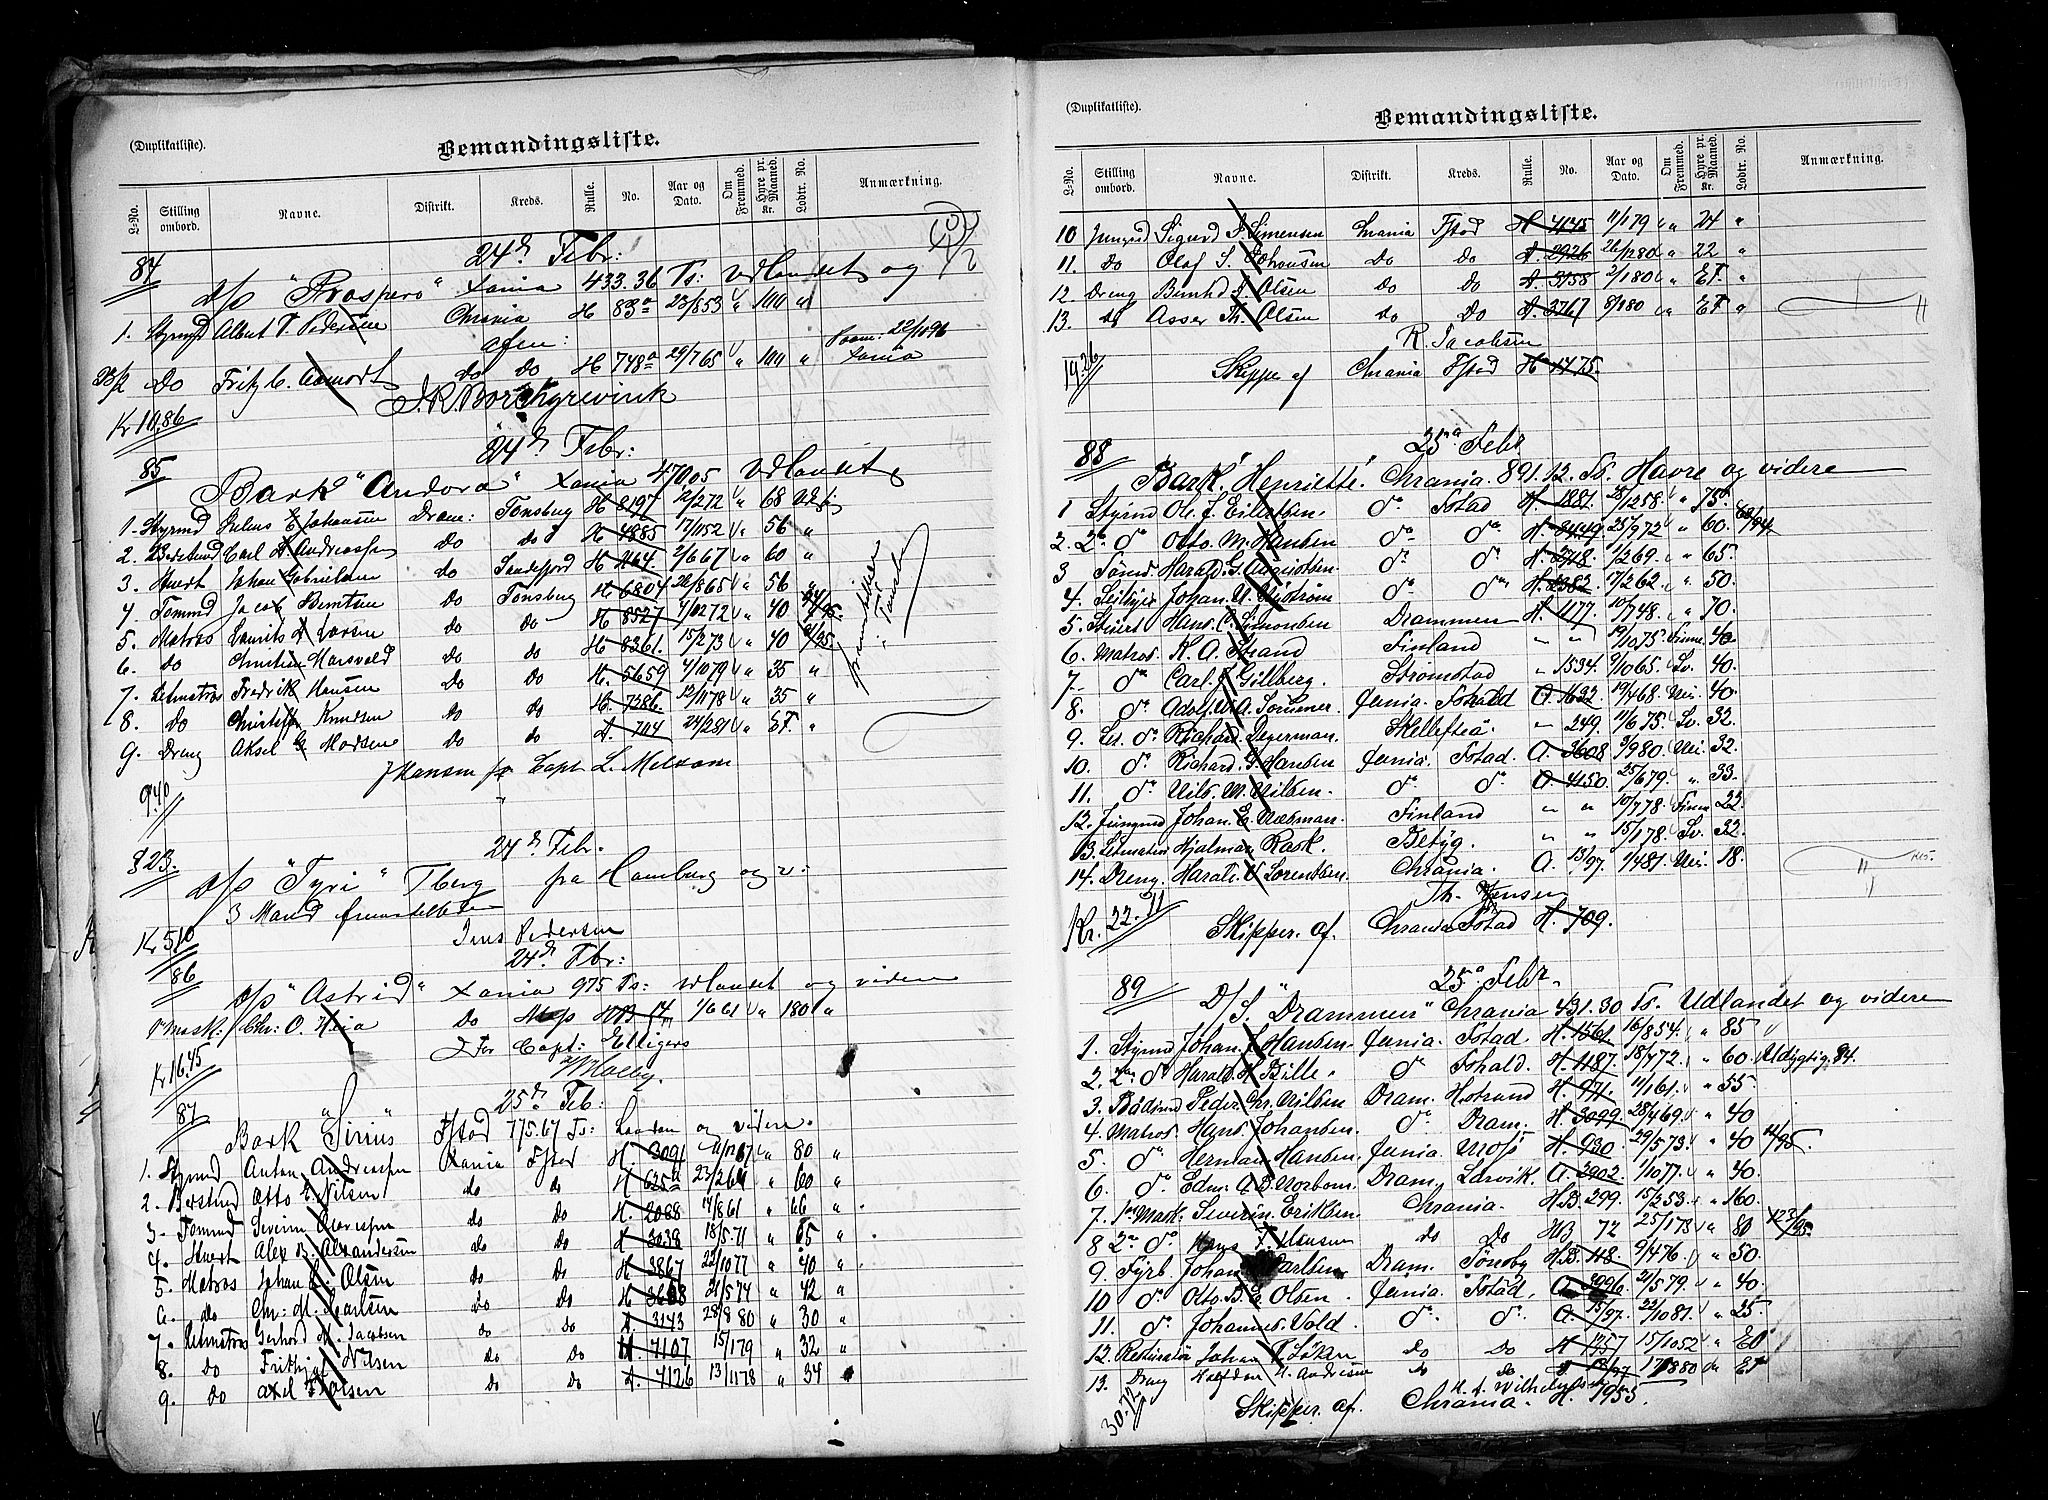 (Duplikatliste).
Bemandingsliste.
L-No. Stilling ombord. Navne. Distrikt. Kreds. Rulle. No. Aar og Dato. Om Fremmed. Hyre pr. Maaned. Kr. Lodtr. No. Anmærkning.
84 24de Febr:
D/S "Prospero" Xania 433.36 Ts: Udlandet og
1. Styrmd Albert T. Pedersen Chrania H 83a 23/853 " 100 "
afm:
Do Fritz C. Aamodt Do Do H 748a 29/765 " 100 " Paam: 22/1096 Xania
J.R. Borchgrevink
Kr 10.86
85 24de Febr:
Bark "Andora" Xania 470.05 Udlandet
1. Styrmd Julius E Johansen Dram: Tønsberg H 8197 12/272 " 68
2. Bedstmd Carl A Andreassen do do H 4885 17/1152 " 56 "
3. Stuert Johan Gabrielsen do Sandefjord H 1164 2/667 " 60 "
4. Tømmd Jacob Berntsen Do Tønsberg H 6804 26/865 " 56 "
5. Matros Laurits A Larsen Do Do H 8527 4/1272 " 40 /95
6. Do Christian Marsveld Do do H 8361. 15/273 " 40 /95
7. Letmatros Fredrik Hansen Do Do H. 5659 4/1079 " 35 "
8. do Christoff Knudsen Do do H. 7386 12/1178 " 35 "
9. Dreng Aksel G Madsen Do do A. 704 24/281 " E.F. "
J Hansen for Capt L. Melsom
9.40
323. 24de Febr.
D/S "Tyri" Tberg fra Hamburg og v:
3 Mand
Kr 5.10 Jens Pedersen
86 24de Febr:
D/S "Astrid" Xania 975 Ts: Udlandet og videre
1 Mask: Chr: O. Heia Do H.B 14 1/661 " 180 "
For Capt: Ellligers
Kr 16.45
87 25de Feb:
Bark "Sirius" Fstad 775.67 Ts: London og videre.
1. Styrmd Anton Andreassen Xania Fstad H. 3091 " 80 "
2. Bedstmd Otto E Nilsen do do H 625a 23/264 " 60 "
3. Tømmd Severin do Do H. 2088 14/861 " 66 "
4. Stuert Alex B. Alexandersen do Do H 3039 18/571 " 65 "
5. Matros Johan L. Olsen do Do H 3867 22/1077 " 40 "
6. do Chr: M. Carlsen do Do H 3608 21/574 " 42 "
7. Letmatros Gerhard M. Jacobsen do do A 3143 28/880 " 30 "
8. Do Frithjof Nilsen do do H 7107 15/179 " 32 "
9. do Axel F Olsen do do A. 4126 13/1178 " 34 "
(Duplikatliste).
Bemandingsliste.
L-No. Stilling ombord. Navne. Distrikt. Kreds. Rulle. No. Aar og Dato. Om Fremmed. Hyre pr. Maaned. Kr. Lodtr. No. Anmærkning.
10 Jungmd Sigurd S. Simensen Chrania Fstad H 4145 11/179 " 24 "
11. Do Olaf S. Johansen Do Do A. 2926 26/1280 " 22 "
12. Dreng Bernhd A. Olsen Do Do A. 3158 2/180 " E.F. "
13. do Asser Th. Olsen do Do A. 3767 8/180 " E.F. "
R. Jacobsen
19.26 Skipper af Chrania Fstad H 1475.
88 25de Febr
Bark "Henriette" Chrania. 891.12. Ts. Havre og videre
1 Styrmd Ole J. Eilertsen. do Fstad H. 1881. 28/1258. " 75.
2. 2den do Otto. M. Hansen do do H. 3449 25/972 " 60. /94.
3 Tømd. Harald. G. Augustsen. do do H. 2718. 1/269. " 65.
4. Seilmgr Johan. A. Nyström do do H. 2382 17/262. " 50.
5. Stuert Hans. C. Simonsen Drammen H. 1177. 10/748. " 70.
6. Matros. K. A. Strand Finland " " 19/1075. Finne. 40.
7. do Carl. J. Gillberg. Strömstad " 1534. 9/1065. Sv. 40.
8. do Adolf. W. A. Sommer. Xania. Fshald A. 1632. 19/468. Nei. 40.
9. Let. do Richard. Degerman. Skellefteå " 249. 11/675. Sv. 32.
10. do Richard. G. Hansen Xania. Fstad. A. 3608 3/980. Nei. 32.
11. do Nils. M. Nilsen. do do A. 4150. 25/679. " 33.
12. Jungmd Johan. E. Nabman. Finland " " 10/778. Finne 22.
13. Letmatros Hjalmar Rask. Betyg. " " 15/178. Sv. 32.
14. Dreng. Harald. N. Lorentsen. Chrania. A. 13/97. 1/481. Nei. 18.
Th. Jensen
Kr. 22.71 Skipper. af. Chrania Fstad H. 709.
89 25de Febr.
D/S. "Drammen" Chrania 431.30 Ts. Udlandet og videre
1. Styrmd Johan. L. Hansen. Xania. Fstad. H. 1561. 16/854. " 85 "
2. 2den do Harald. H. Bille. do Fshald. H. 1187. 18/772. " 60. Udygtig. 94.
3. Bådsmd Peder. Chr. Nilsen Dram. Hstrand H. 971. 11/161. " 55
4. Matros Hans. Johansen. do Dram. H. 3099. 28/469. " 40
5. do Herman. Hansen. Xania. Moss H. 930 29/573. " 40 /95
6. do Edm: A. B. Norbom. Dram. Larvik. A. 3902. 1/1077. " 40.
7. 1ste Mask: Severin. Eriksen. Chrania. H.B. 299. 15/253. " 160.
8 2den do Hans F. Hansen do Do HB 72 25/173 " 80 123/95.
9. Fyrb. Johan Carlsen Dram. Tønsbg H.B. 118. 9/476. " 50.
10 do Otto. B. G. Olsen. Xania. Fstad. A. 3096. 21/579. " 40.
11. do Johannes. Vold. do do A. 15/97. 22/1081. " 25.
12. Resturatør Johan P. Løken Do Do H 1357 15/1052 " E.F
13. Dreng Halfdan H. Andersen do Do A 12/97 17/880 " E.F
30.72 H. A. Wilhelmsen
Skipper. af. Chrania. H. 7955.